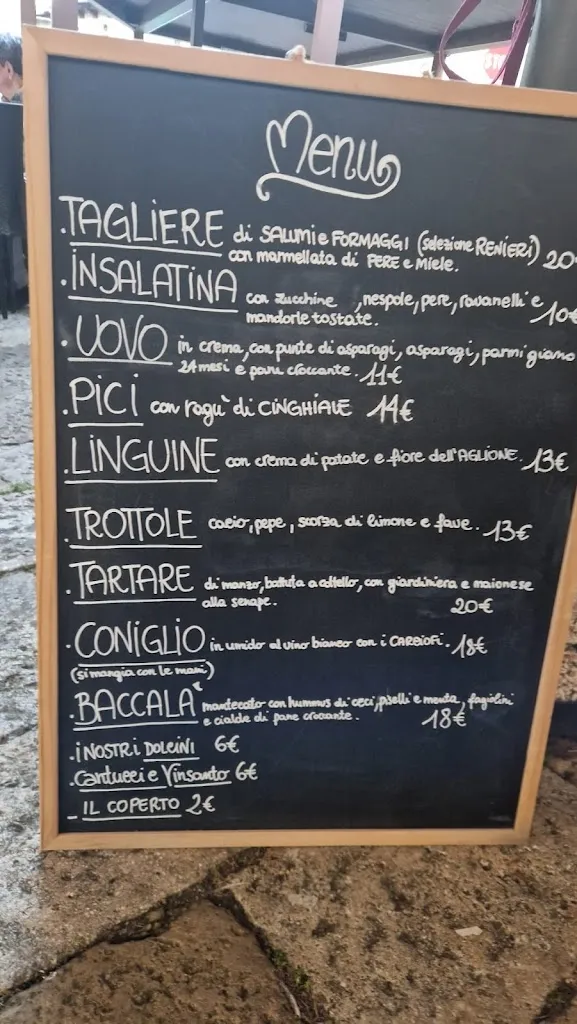 Menu
.TAGLIERE di SALUMI e FORMAGGI (selezione RENIERI) 20
con marmellata di PERE e Miele.
.INSALATINA con zucchine, nespole, pere, ravanelli e 10€
mandorle tostate.
.UOVO in crema, con punte di asparagi, asparagi, parmigiano
24 mesi e pane croccante. 11€
.PICI con ragù di CINGHIALE 14€
.LINGUINE con crema di patate e fiore dell'AGLIONE. 13€
.TROTTOLE cacio, pepe, scorza di limone e fave. 13€
.TARTARE di manzo, battuta a coltello, con giardiniera e maionese
alla senape. 20€
.CONIGLIO in umido al vino bianco con i CARCIOFI. 18€
(si mangia con le mani)
.BACCALA' mantecato con hummus di ceci, piselli e menta, fagiolini
e cialde di pane croccante. 18€
.i NOSTRI DOLCINI 6€
.Cantucci e Vinsanto 6€
- IL COPERTO 2€